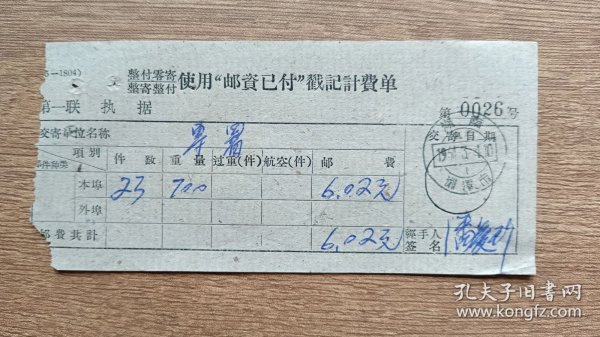 5—1804)
整付零寄
整寄整付 使用“邮資已付”戳記計費单
第一联 执据
第 0026 号
交寄单位名称 專署
交寄日期
項别 件数 重量 过重(件) 航空(件) 邮費
邮件种类
本埠 23 700 6.02元
外埠
邮費共計 6.02元
經手人
签名
湘潭市
孔夫子旧书网
www.kongfz.com